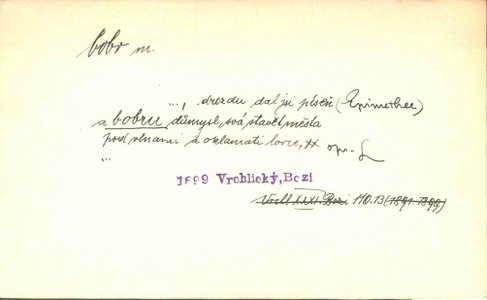 bobr m.
..., drozdu dal jsi píseň (Epimethee)
a bobru důmysl, svá stavět města
pod vlnami a oklamati lovce,
...
1899 Vrchlický, Bozi
Vrchl XXXI. Bozi 110.13 (1891-1899)